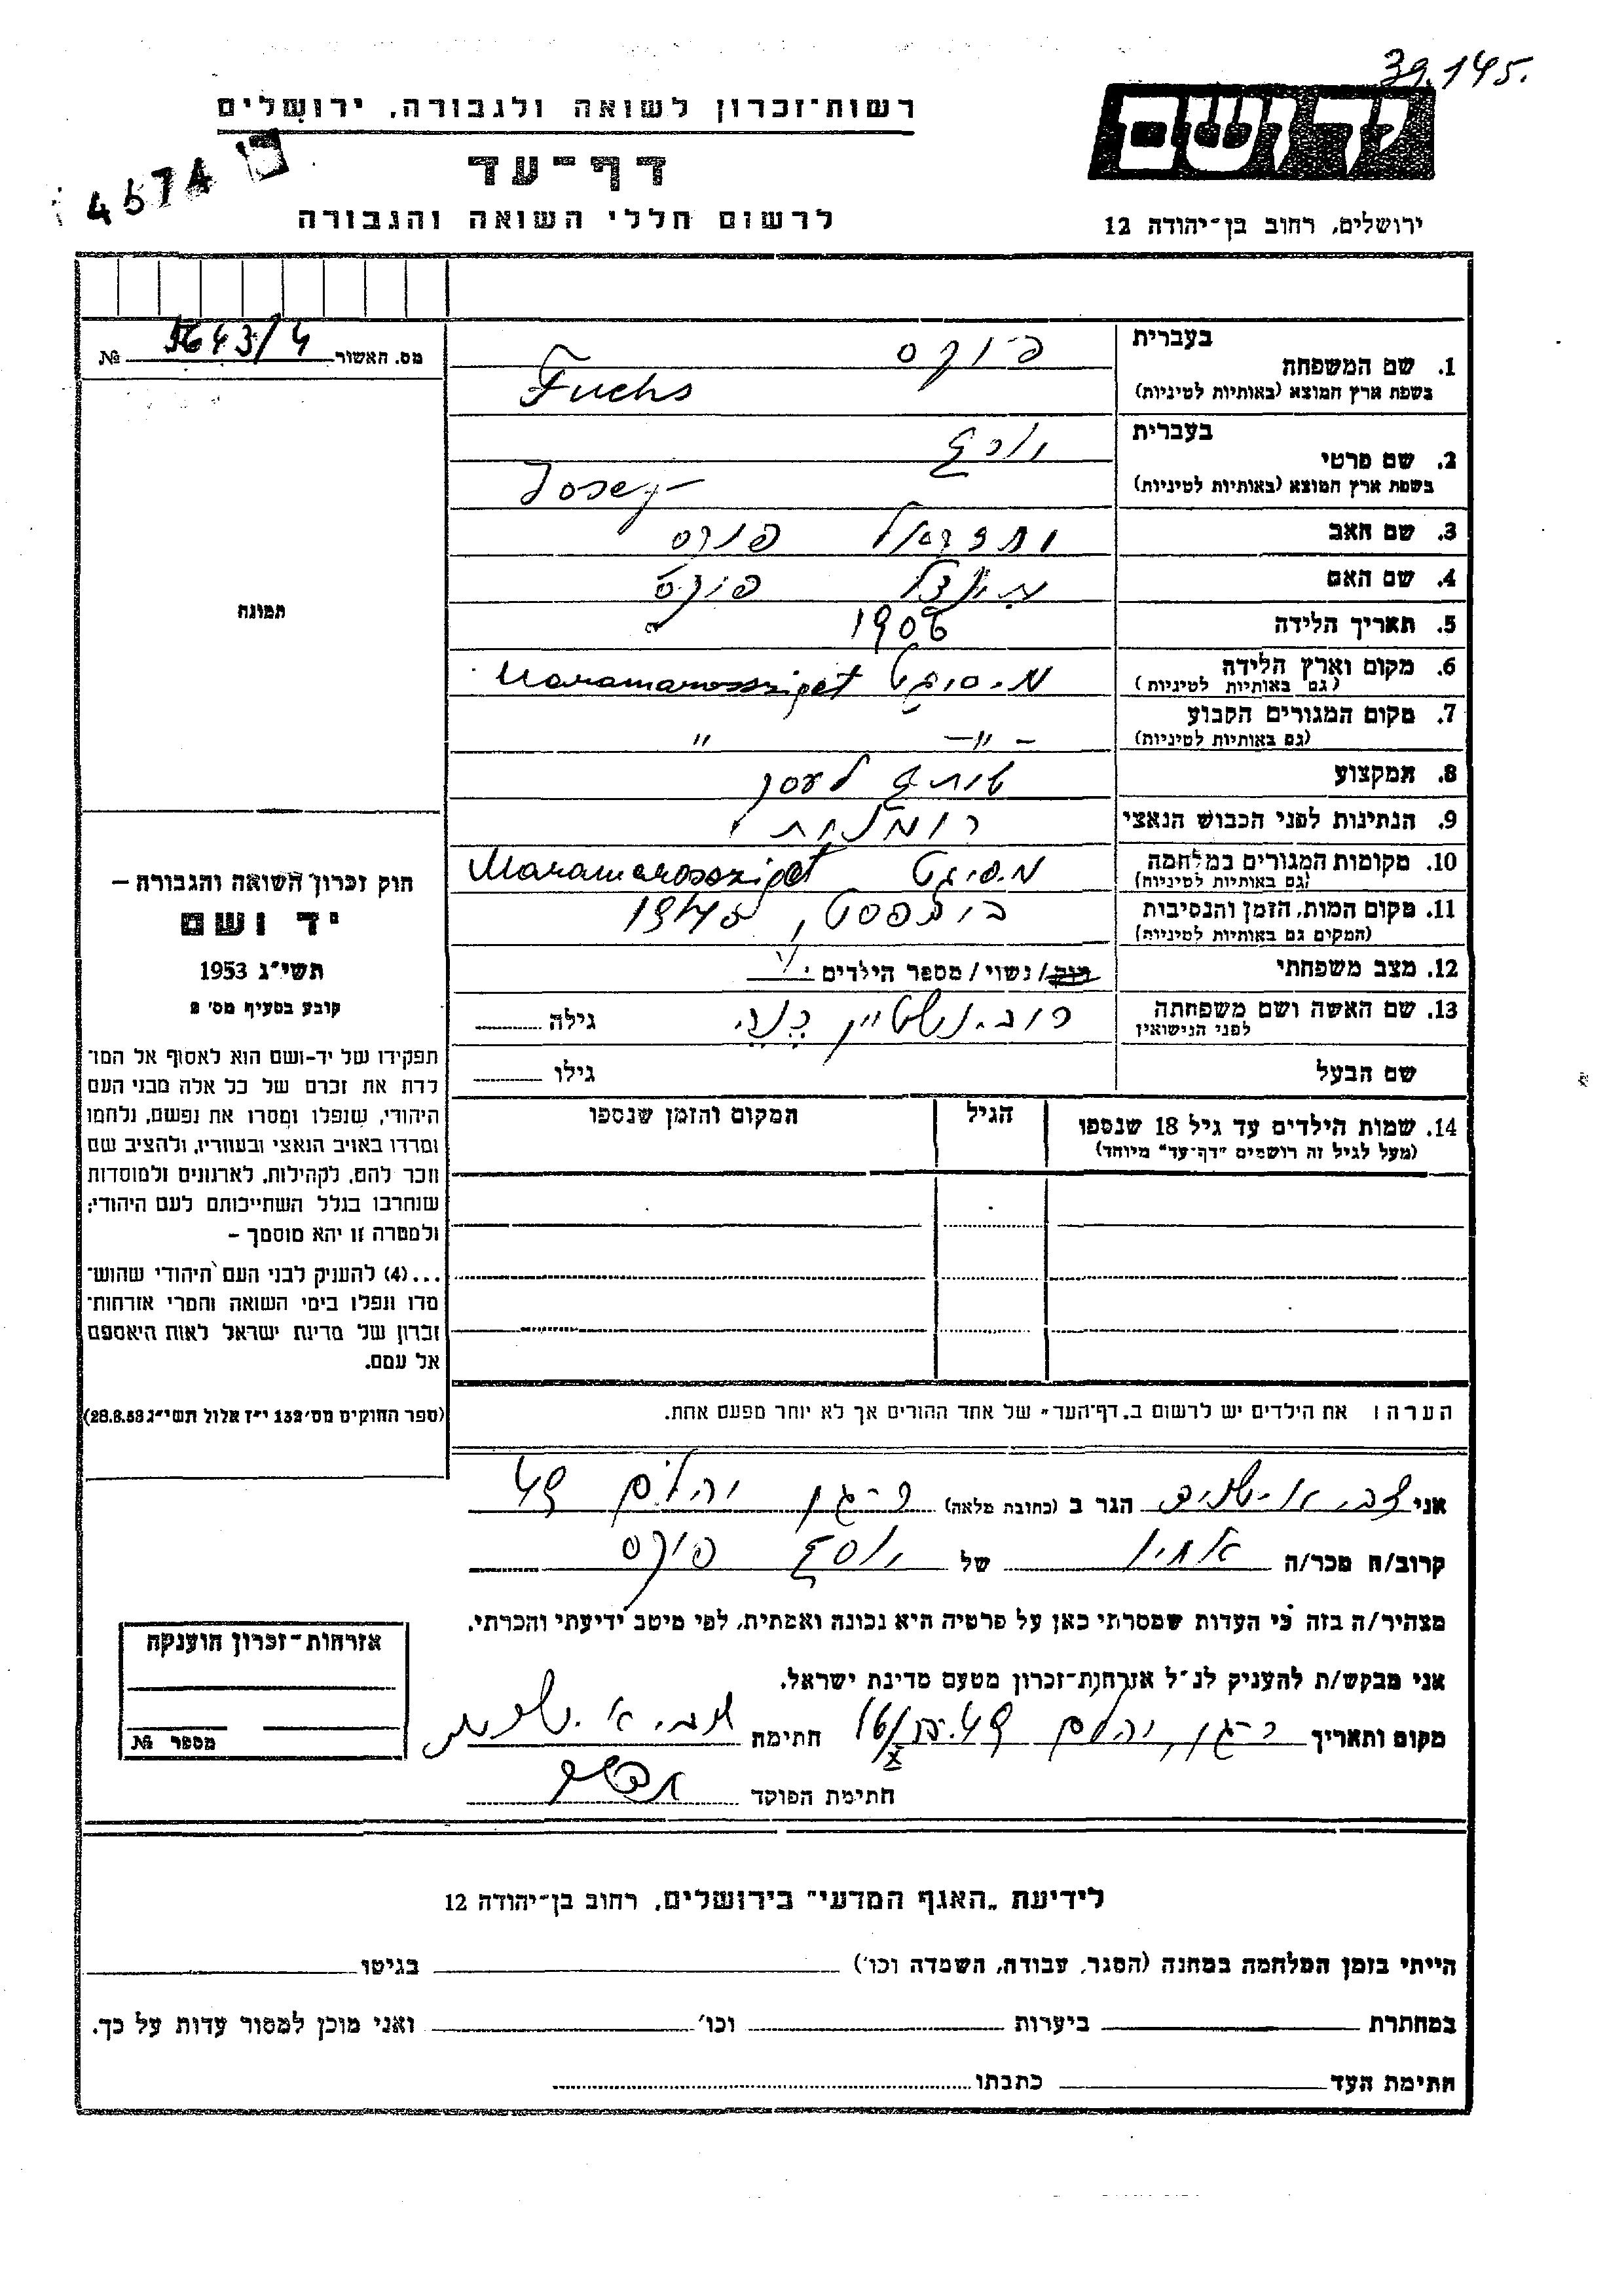 39.145.
רשות־זכרון לשואה ולגבורה, ירושלים
דף־עד
לרשום חללי השואה והגבורה
ירושלים, רחוב בן־יהודה 12
מס. האשור 5643/4 №
תמונה
חוק זכרון השואה והגבורה –
יד ושם
תשי״ג 1953
קובע בסעיף מס׳ 2
תפקידו של יד-ושם הוא לאסוף אל המו־
לדת את זכרם של כל אלה מבני העם
היהודי, שנפלו ומסרו את נפשם, נלחמו
ומרדו באויב הנאצי ובעוזריו, ולהציב שם
וזכר להם, לקהילות, לארגונים ולמוסדות
שנחרבו בגלל השתייכותם לעם היהודי;
ולמטרה זו יהא מוסמך –
...(4) להעניק לבני העם היהודי שהוש־
מדו ונפלו בימי השואה והמרי אזרחות־
זכרון של מדינת ישראל לאות היאספם
אל עמם.
(ספר החוקים מס׳ 132 י״ז אלול תשי״ג 28.8.53)
בעברית פוקס
1. שם המשפחה
בשפת ארץ המוצא (באותיות לטיניות) Fuchs
בעברית יוסף
2. שם פרטי
בשפת ארץ המוצא (באותיות לטיניות) Josef
3. שם האב פוקס
4. שם האם פוקס
5. תאריך הלידה 1906
6. מקום וארץ הלידה מ.סיגט Maramarosszipet
(גם באותיות לטיניות)
7. מקום המגורים הקבוע – ״ – ״
(גם באותיות לטיניות)
8. המקצוע
9. הנתינות לפני הכבוש הנאצי רומנית
10. מקומות המגורים במלחמה מ.סיגט Maramarosszipet
(גם באותיות לטיניות)
11. מקום המות, הזמן והנסיבות בודפסט, 1945
(המקום גם באותיות לטיניות)
12. מצב משפחתי רוק/נשוי/מספר הילדים
13. שם האשה ושם משפחתה רובינשטיין גילה
לפני הנישואין
שם הבעל גילו
14. שמות הילדים עד גיל 18 שנספו הגיל המקום והזמן שנספו
(מעל לגיל זה רושמים "דף־עד" מיוחד)
הערה: את הילדים יש לרשום ב„דף־העד״ של אחד ההורים אך לא יותר מפעם אחת.
אני צבי הגר ב (כתובת מלאה) פ־גן יהלום 54
קרוב/ה מכר/ה אחיו של יוסף פוקס
מצהיר/ה בזה כי העדות שמסרתי כאן על פרטיה היא נכונה ואמתית, לפי מיטב ידיעתי והכרתי.
אני מבקש/ת להעניק לנ״ל אזרחות־זכרון מטעם מדינת ישראל.
מקום ותאריך ר־גן, יהלום 54. חתימה
חתימת הפוקד
אזרחות־זכרון הוענקה
מספר №
לידיעת „האגף המדעי״ בירושלים, רחוב בן־יהודה 12
הייתי בזמן המלחמה במחנה (הסגר, עבודה, השמדה וכו׳) בגיטו
במחתרת ביערות וכו׳ ואני מוכן למסור עדות על כך.
חתימת העד כתבתו